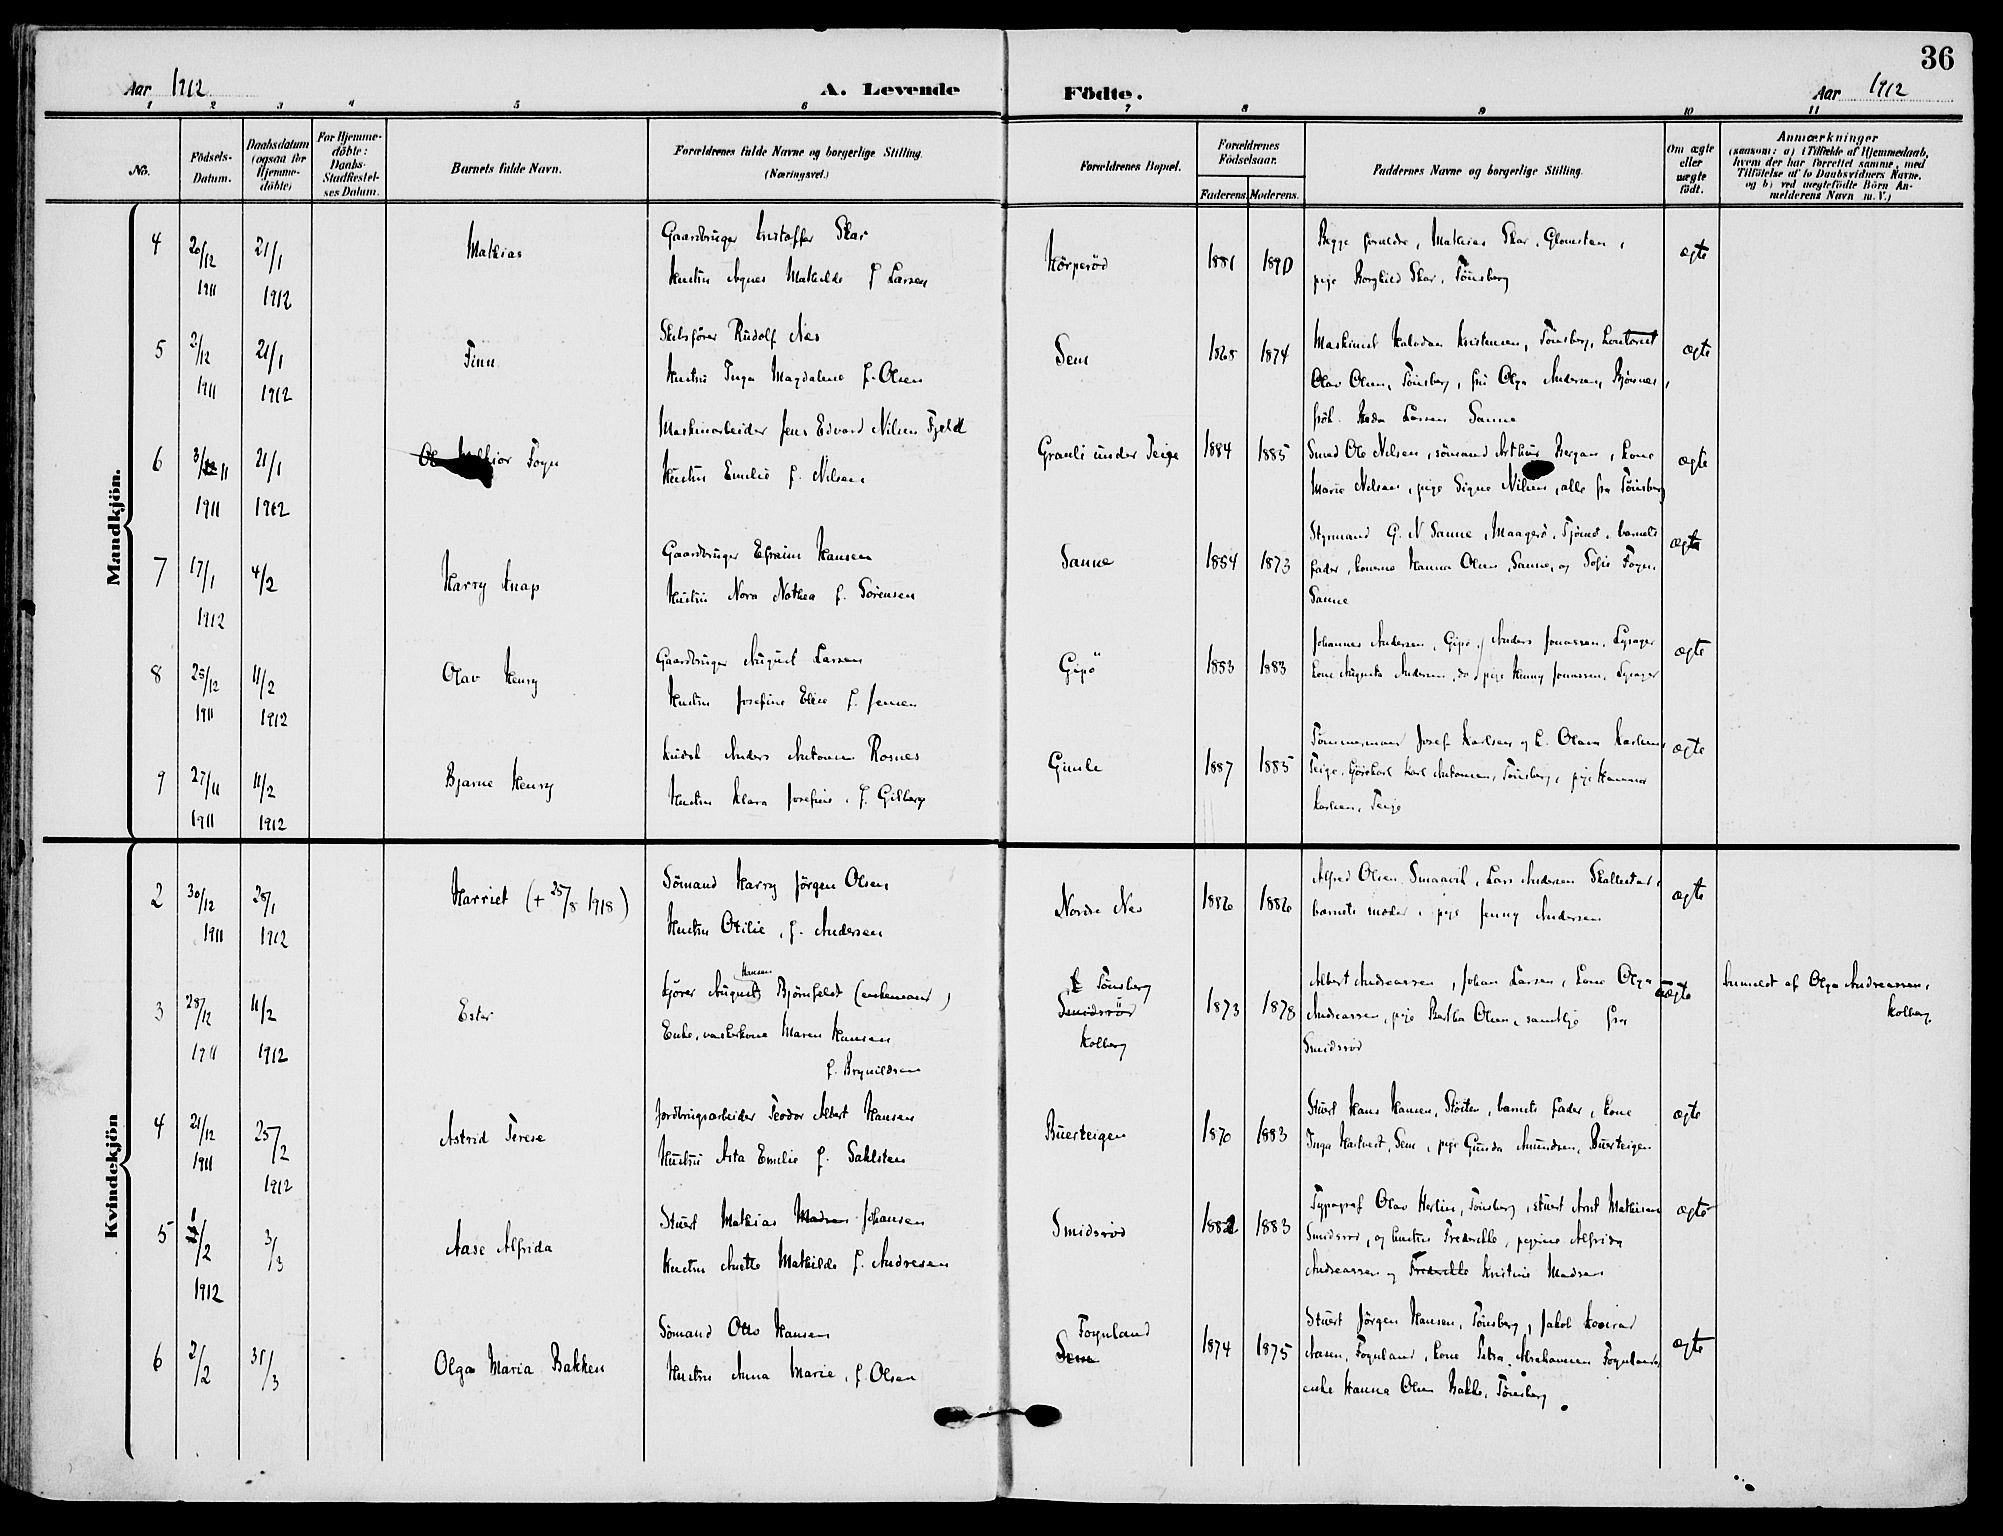 36
Aar 1912
A. Levende
Födte.
Aar 1912
1 2 3 4 5 6 7 8 9 10 11
No.
Födsels-
Datum.
Daabsdatum
(ogsaa for
Hjemme-
döbte)
For Hjemme-
döbte:
Daabs-
Stadfæstel-
ses Datum.
Barnets fulde Navn.
Forældrenes fulde Navne og borgerlige Stilling.
(Næringsvei.)
Forældrenes Bopæl.
Forældrenes
Födselsaar.
Faderens. Moderens.
Faddernes Navne og borgerlige Stilling.
Om ægte
eller
uægte
födt.
Anmærkninger
(saasom: a) i Tilfælde af Hjemmedaab,
hvem der har forrettet samme, med
Tilföielse af to Daabsvidners Navne,
og b) ved uægtefödte Börn An-
melderens Navn m. V.)
Mandkjön.
4 20/12 1911 21/1 1912 Mathias
Gaardbruger Kristoffer Skar
Hustru Agnes Mathilde f Larsen
Hörperöd 1881 1890
Begge forældre, Mathias Skar, Glomsten,
pige Borghild Skar, Tönsberg
ægte
5 2/12 1911 21/1 1912 Finn
Skibsförer Rudolf Næs
Hustru Inga Magdalene f. Olsen
Sem 1868 1874
Maskinist Halvdan Kristensen, Tönsberg, kontorist
Olav Olsen, Tönsberg, fru Olga Andersen, Björnnes,
frök. Larsen Sanne
ægte
6 3/11 1911 21/1 1912 Foyn
Maskinarbeider Jens Edvard Nilsen Fjeld
Hustru Emilie f. Nilsen
Granli under Teige 1884 1885
Smed Ole Nilsen, sömand Arthur Bergan, kone
Marie Nilsen, pige Signe Nilsen, alle fra Tönsberg
ægte
7 17/1 1912 4/2 Harry Knap
Gaardbruger Efraim Hansen
Hustru Nora Nathea f. Sörensen
Sanne 1854 1873
Styrmand G. N Sanne, Maagerö, Tjömö, barnets
fader, konerne Hanna Olsen, Sanne, og Sofie Foyn,
Sanne
ægte
8 25/12 1911 11/2 1912 Olav Henry
Gaardbruger August Larsen
Hustru Josefine Elise f. Jensen
Gipö 1883 1883
Johannes Andersen, Gipö, Anders Jonassen,
kone Augusta Andersen, do, pige Henny Jonassen,
ægte
9 27/11 1911 11/2 1912 Bjarne Henry
Kudsk Anders Antonsen Rosnes
Hustru Klara Josefine, f. Gilberg
Gimle 1887 1885
Tömmermand Josef Karlsen og k. Olava Karlsen,
Teige, Karl Antonsen, Tönsberg, pige Hanna
Karlsen, Teige
ægte
Kvindekjön
2 30/12 1911 28/1 1912 Harriet (+ 25/8 1918)
Sömand Harry Jörgen Olsen
Hustru Otilie, f. Andersen
Nordre Nes 1886 1886
Alfred Olsen Smaavik, Lars Andersen Skallestad,
barnets moder, pige Jenny Andersen
ægte
3 28/12 1911 11/2 1912 Ester
Kjörer August Hansen Björnfeldt (enkemand)
Enke, vaskerkone Maren Hansen
f. Brynildsen
f Tönsberg
Smidsröd
Kolberg
1873 1878
Albert Andreassen, Johan Larsen, kone Olga
Andreassen, pige Bertha Olsen, samtlige fra
Smidsröd
uægte
Anmeldt af Olga Andreassen,
Kolberg.
4 21/12 1911 25/2 1912 Astrid Terese
Jordbrugsarbeider Teodor Albert Hansen
Hustru Asta Emilie f. Sahlsten
Buerteigen 1870 1883
Stuert Hans Hansen, Slotten, barnets fader, kone
Inga Hartvedt, Sem, pige Gunda Amundsen, Buerteigen
ægte
5 1/2 1912 3/3 Aase Alfrida
Stuert Mathias Madsen Johansen
Hustru Anette Mathilde f. Andresen
Smidsröd 1882 1883
Typograf Olav Herlin, Tönsberg, stuert Arnt Mathisen
Smidsröd, og hustru Fredrikke, pigerne Alfrida
Andreassen og Fredrikke Kristine Madsen
ægte
6 2/2 31/3 Olga Maria Bakken
Sömand Otto Hansen
Hustru Anna Marie, f. Olsen
Foynland
Sem
1874 1875
Stuert Jörgen Hansen, Tönsberg, Jakob Konrad
Aasen, Foynland, kone Petra Abrahamsen Foynland,
enke Hanna Olsen Bakke, Tönsberg.
ægte